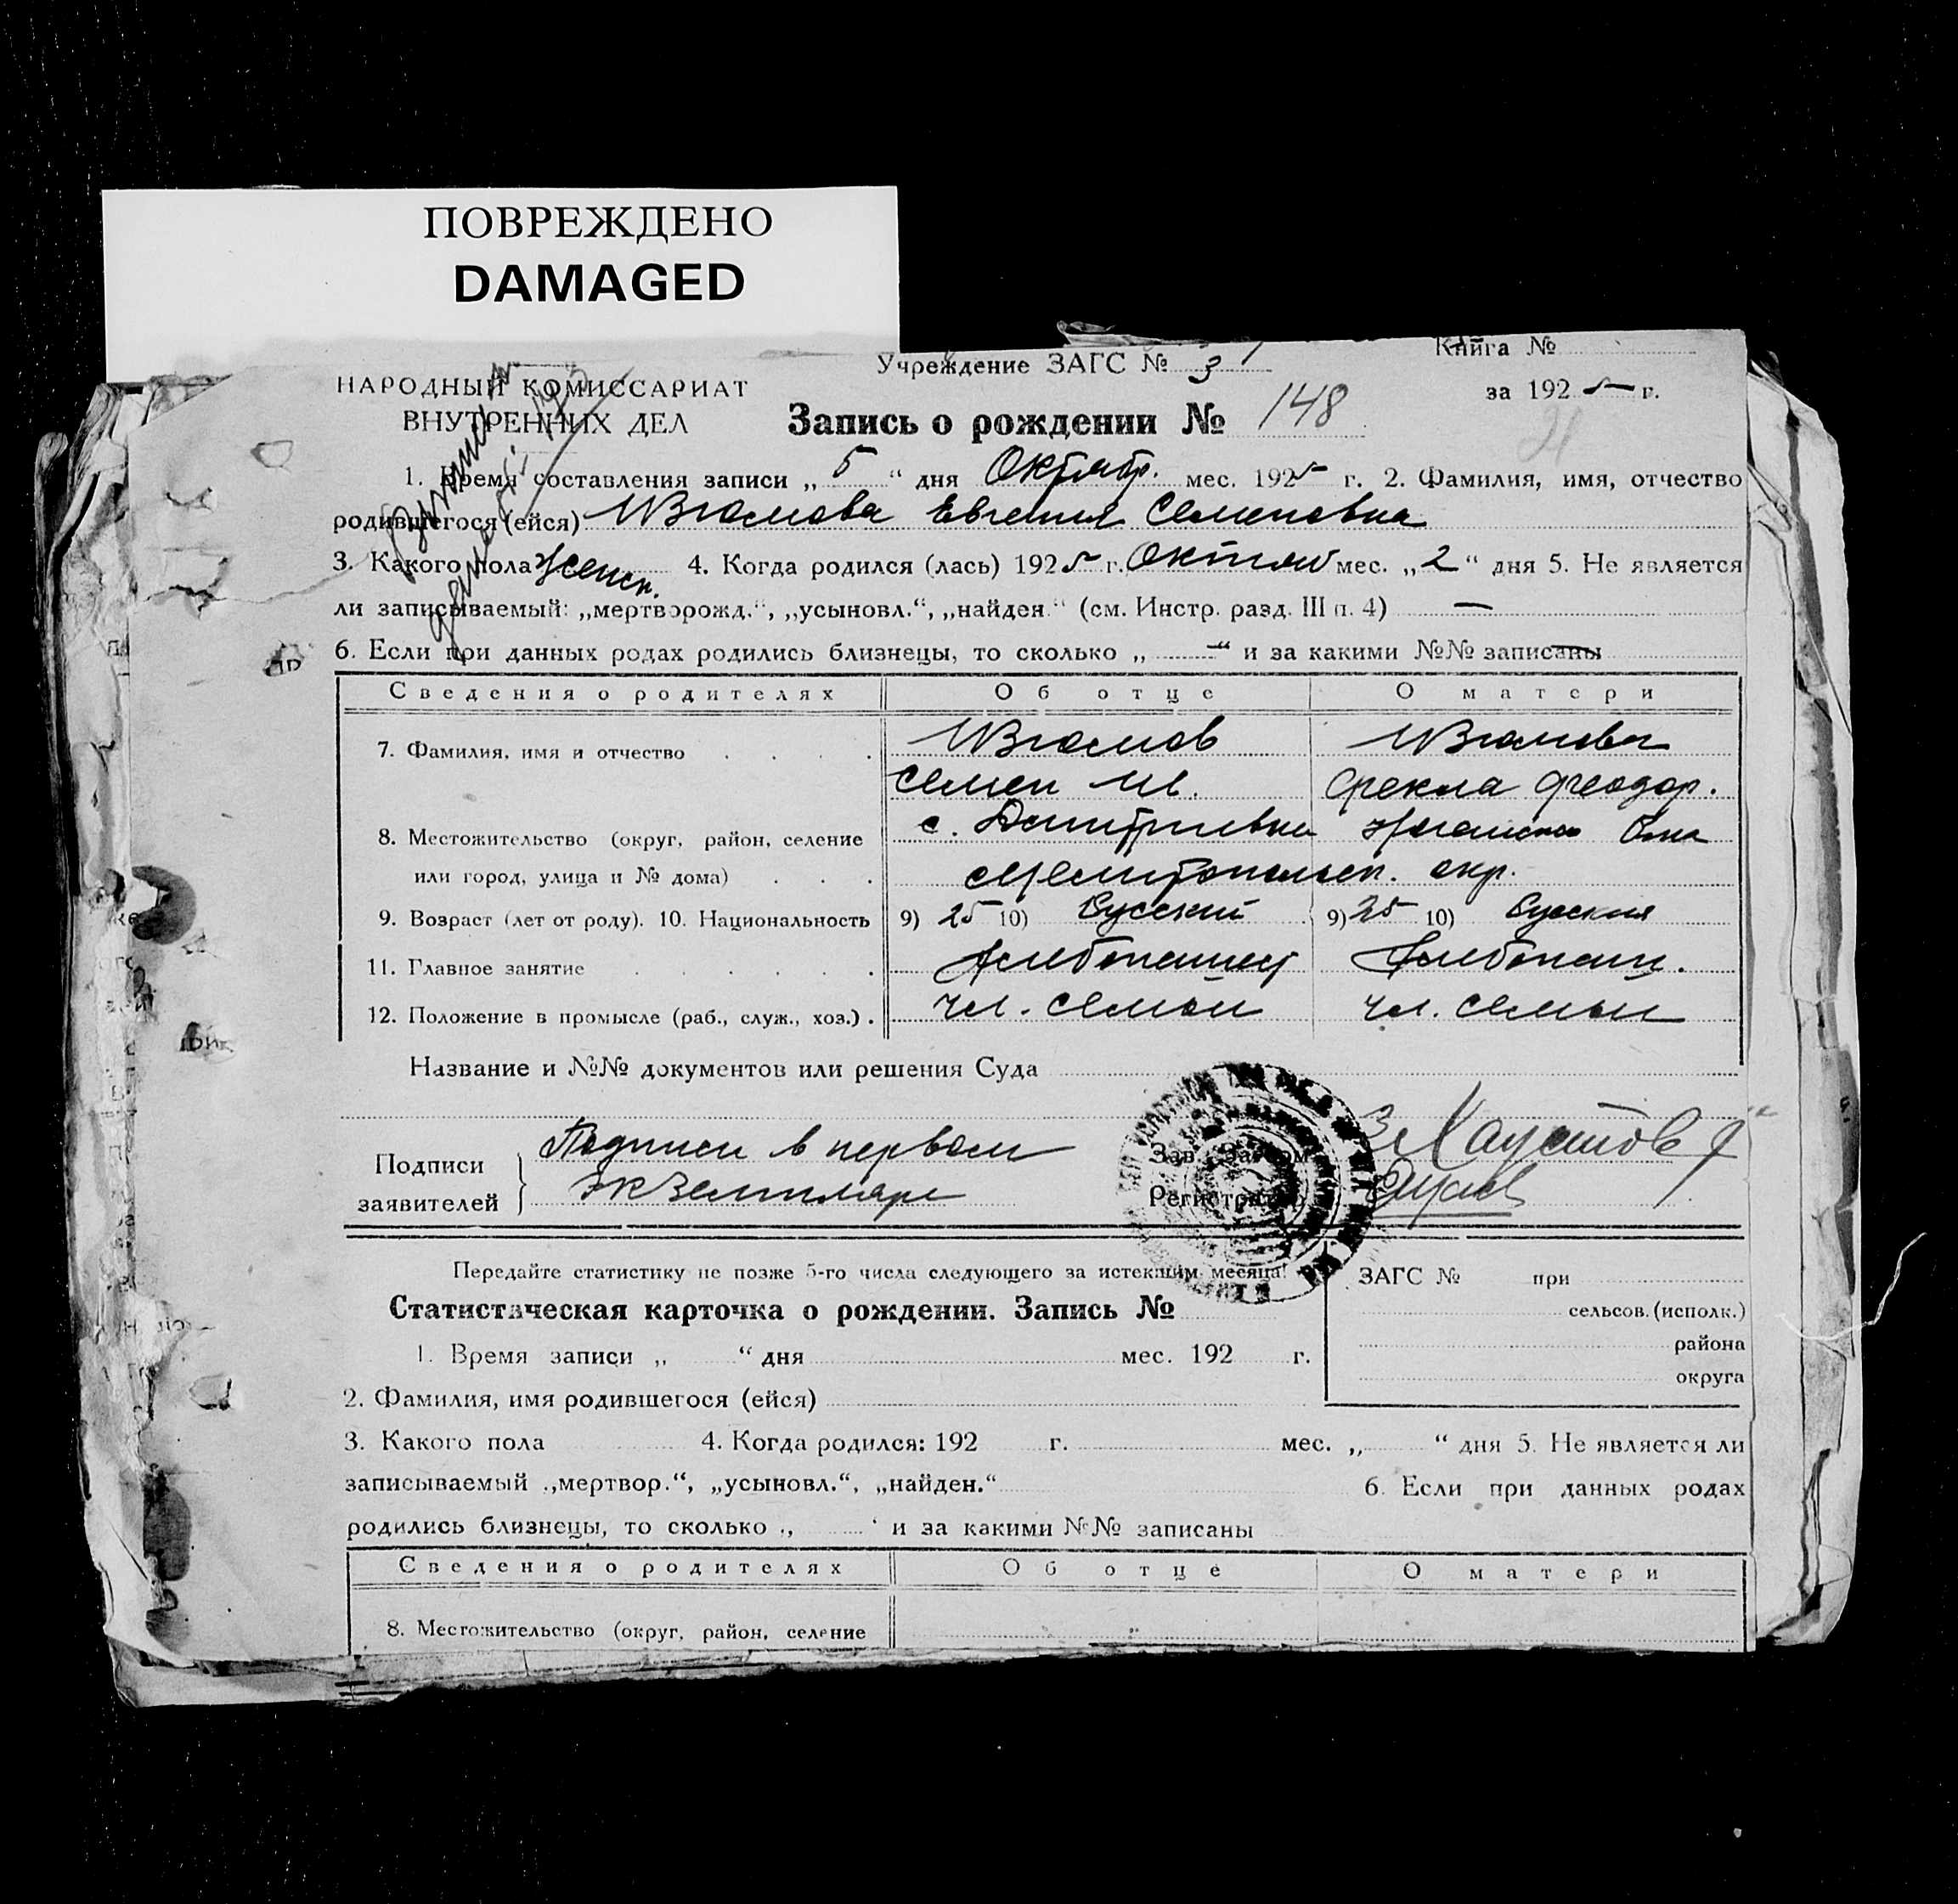 ПОВРЕЖДЕНО
DAMAGED
Учреждение ЗАГС № 3
Книга №
НАРОДНЫЙ КОМИССАРИАТ
за 1925 г.
ВНУТРЕННИХ ДЕЛ
Запись о рождении № 148
21
1. Время составления записи „5“ дня Октябр. мес. 1925 г. 2. Фамилия, имя, отчество
родившегося (ейся) Изюмова Евгения Семеновна
3. Какого пола женск. 4. Когда родился (лась) 1925 г. Октяб мес. „2“ дня 5. Не является
ли записываемый: „мертворожд.“, „усыновл.“, „найден.“ (см. Инстр. разд. III п. 4) —
6. Если при данных родах родились близнецы, то сколько „—“ и за какими №№ записаны —
Сведения о родителях Об отце О матери
7. Фамилия, имя и отчество Изюмов Изюмова
Семен Ив. Фекла Феодор.
8. Местожительство (округ, район, селение с. Дмитриевки
или город, улица и № дома) Мелитопольск. окр.
9. Возраст (лет от роду). 10. Национальность 9) 25 10) Русский 9) 25 10) Русская
11. Главное занятие Хлебопашец Хлебопаш.
12. Положение в промысле (раб., служ., хоз.). чл. семьи чл. семьи
Название и №№ документов или решения Суда
Подписи заявителей Подписи в первом
экземпляре
Зав. Загсом Хаустов
Регистратор
Передайте статистику не позже 5-го числа следующего за истекшим месяца!
ЗАГС № при
Статистическая карточка о рождении. Запись №
сельсов. (исполк.)
района
1. Время записи „ “ дня мес. 192 г.
округа
2. Фамилия, имя родившегося (ейся)
3. Какого пола 4. Когда родился: 192 г. мес. „ “ дня 5. Не является ли
записываемый „мертвор.“, „усыновл.“, „найден.“ 6. Если при данных родах
родились близнецы, то сколько „ “ и за какими №№ записаны
Сведения о родителях Об отце О матери
8. Местожительство (округ, район, селение